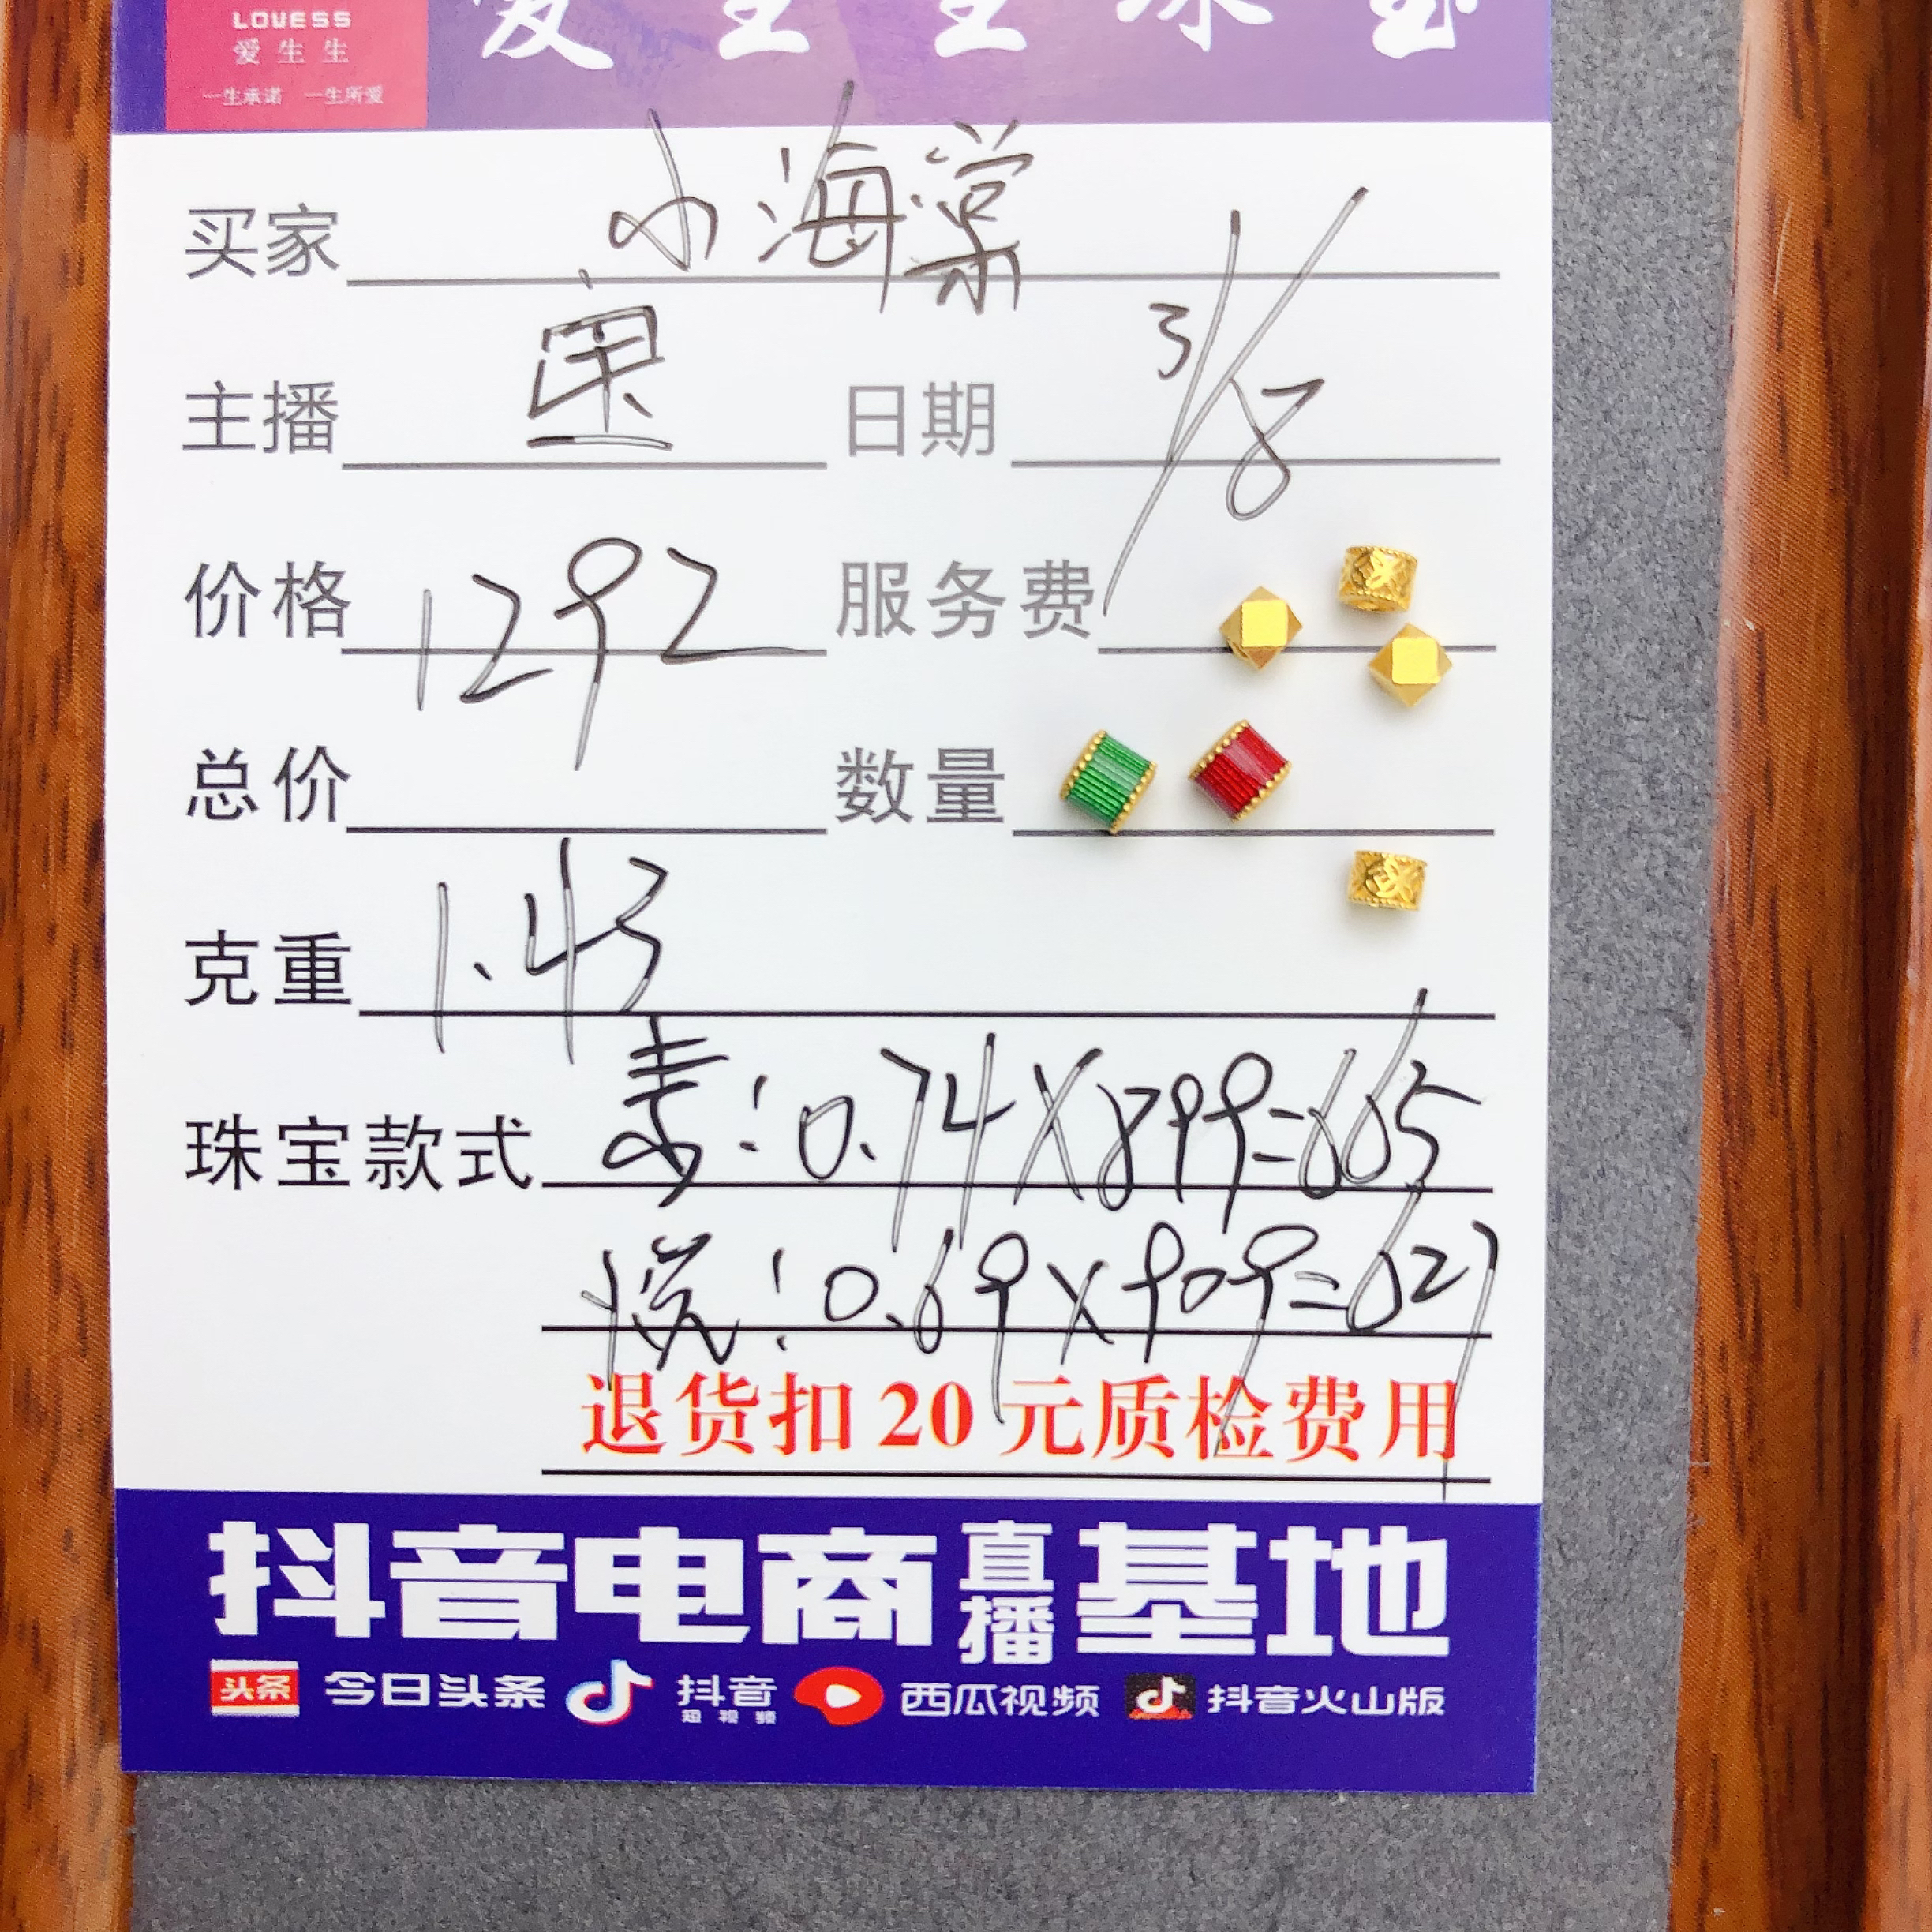 LOVESS
爱生生
一生承诺 一生所爱
爱生生珠宝
买家 小海棠
主播 日期 3/8
价格 1292 服务费
总价 数量
克重 1.43
珠宝款式 素:0.74×899=665
悦:0.69×909=627
退货扣20元质检费用
抖音电商直播基地
头条 今日头条 抖音 短视频 西瓜视频 抖音火山版